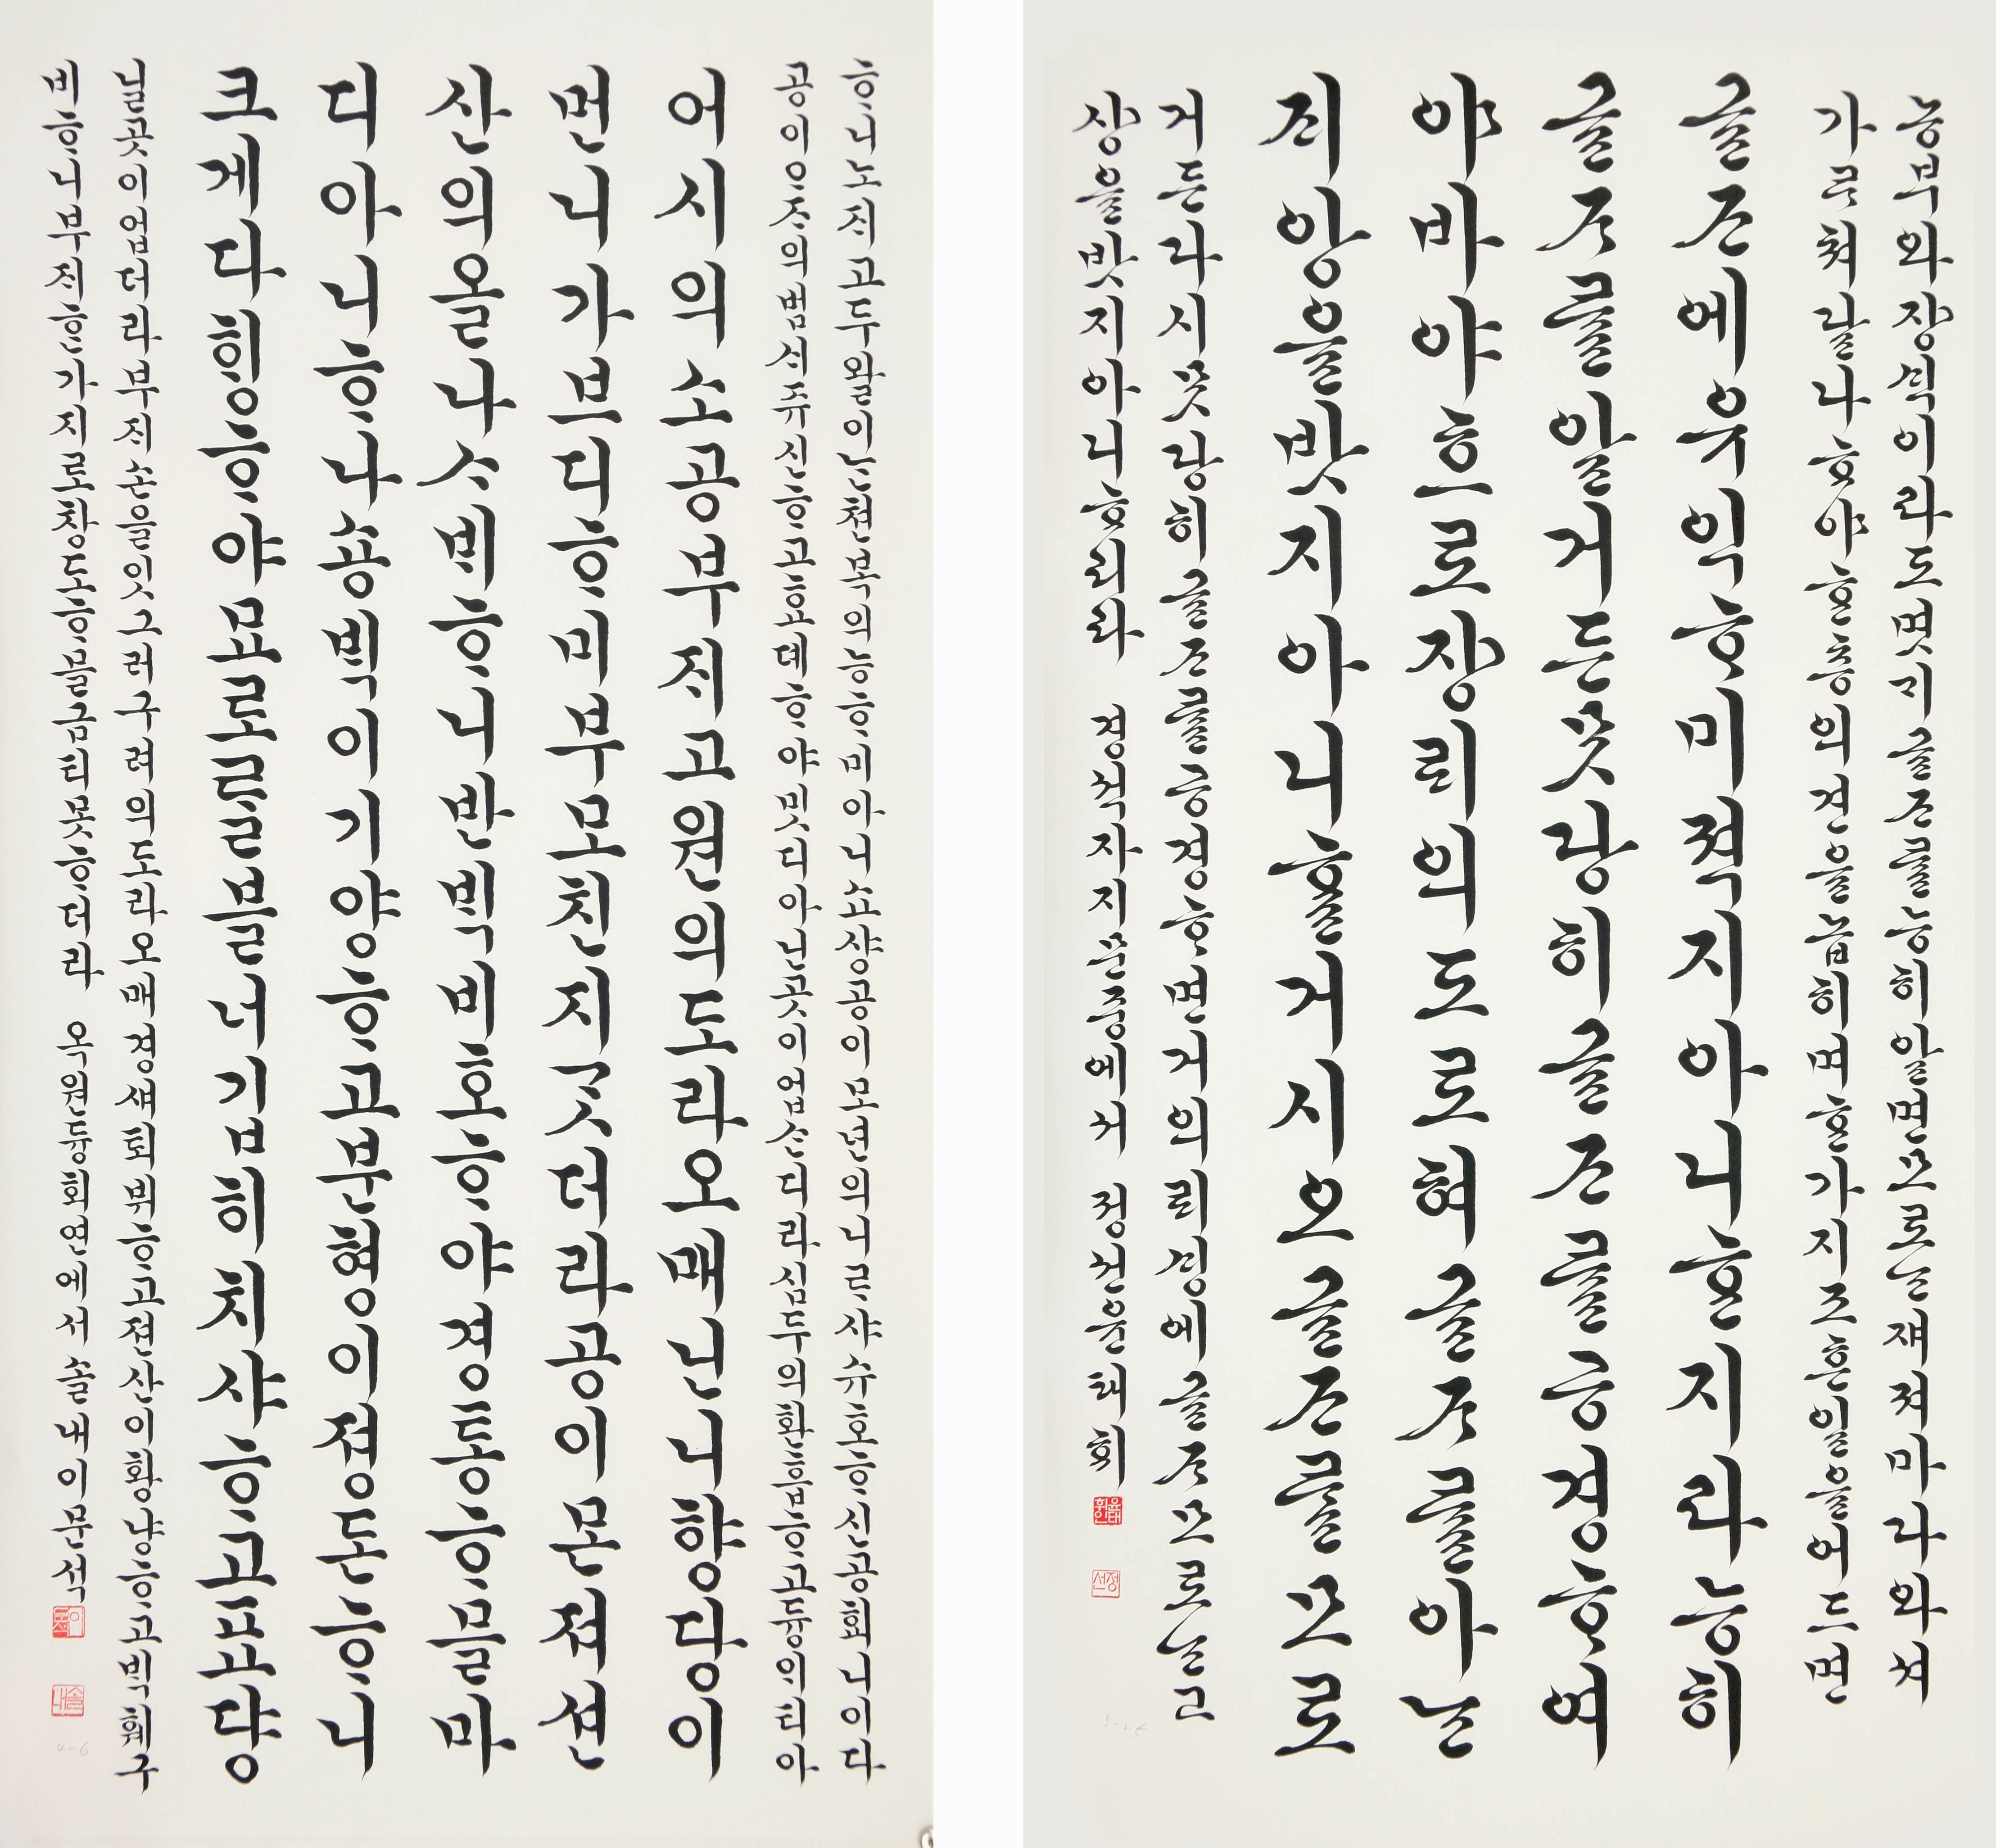 능부와쟝싁이라도몃지글ᄌᆞ를능히알면ᄯᅩ로ᄂᆞᆫ쟤져마라와셔
가ᄅᆞ쳐달나ᄒᆞ야ᄒᆞᆫ층의견을놉히며ᄒᆞᆫ가지조흔일을어드면
글ᄌᆞ에유익ᄒᆞ미젹지아니ᄒᆞᆫ지라능히
글ᄌᆞ를알거든ᄯᅳᆺ랑히글ᄌᆞ를긍경ᄒᆞ여
야바야흐로쟝ᄅᆡ의도로혀글ᄌᆞ를아ᄂᆞᆫ
죄앙을밧지아니ᄒᆞᆯ거시오글ᄌᆞ를ᄯᅩ로
거든라시ᄯᅳᆺ랑히글ᄌᆞ를긍경ᄒᆞ면거의리경에글ᄌᆞᄯᅩ로ᄂᆞᆫ고
상을밧지아니ᄒᆞ리라 경석자지문중에서 정선윤태희
ᄒᆞ니노ᄌᆡ고두왈이ᄂᆞᆫ쳔복의능ᄒᆞ미아니쇼샹공이모년의니ᄅᆞ샤슈호ᄒᆞ신공회니이다
공이ᄋᆞᄌᆞ의범서쥬신ᄒᆞ고효뎨ᄒᆞ야밋디아닌곳이업ᄉᆞᆫ디라심두의환흡ᄒᆞ고듕의되아
어시의소공부ᄌᆡ고원의도라오매닌니향당이
먼니가브디ᄒᆞ미부모친지ᄀᆞᆺ더라공이몬져션
산의올나ᄉᆞᄇᆡᄒᆞ니반ᄇᆡᆨ비호ᄒᆞ야경동ᄒᆞ믈마
디아니ᄒᆞ나숑ᄇᆡᆨ이기양ᄒᆞ고분형이졍돈ᄒᆞ니
크게다ᄒᆡᆼᄒᆞ야묘도ᄅᆞᆯ블너깁히치샤ᄒᆞ고표당
님곳이업더라부ᄌᆡ손을잇그러구려의도라오매경ᄉᆡ퇴뷔ᄒᆞ고젼산이황냥ᄒᆞ고ᄇᆡᆨ훼구
비ᄒᆞ니부ᄌᆡᄒᆞᆫ가지로창도ᄒᆞ믈금티못ᄒᆞ더라 옥원듕회연에서솔내이문석